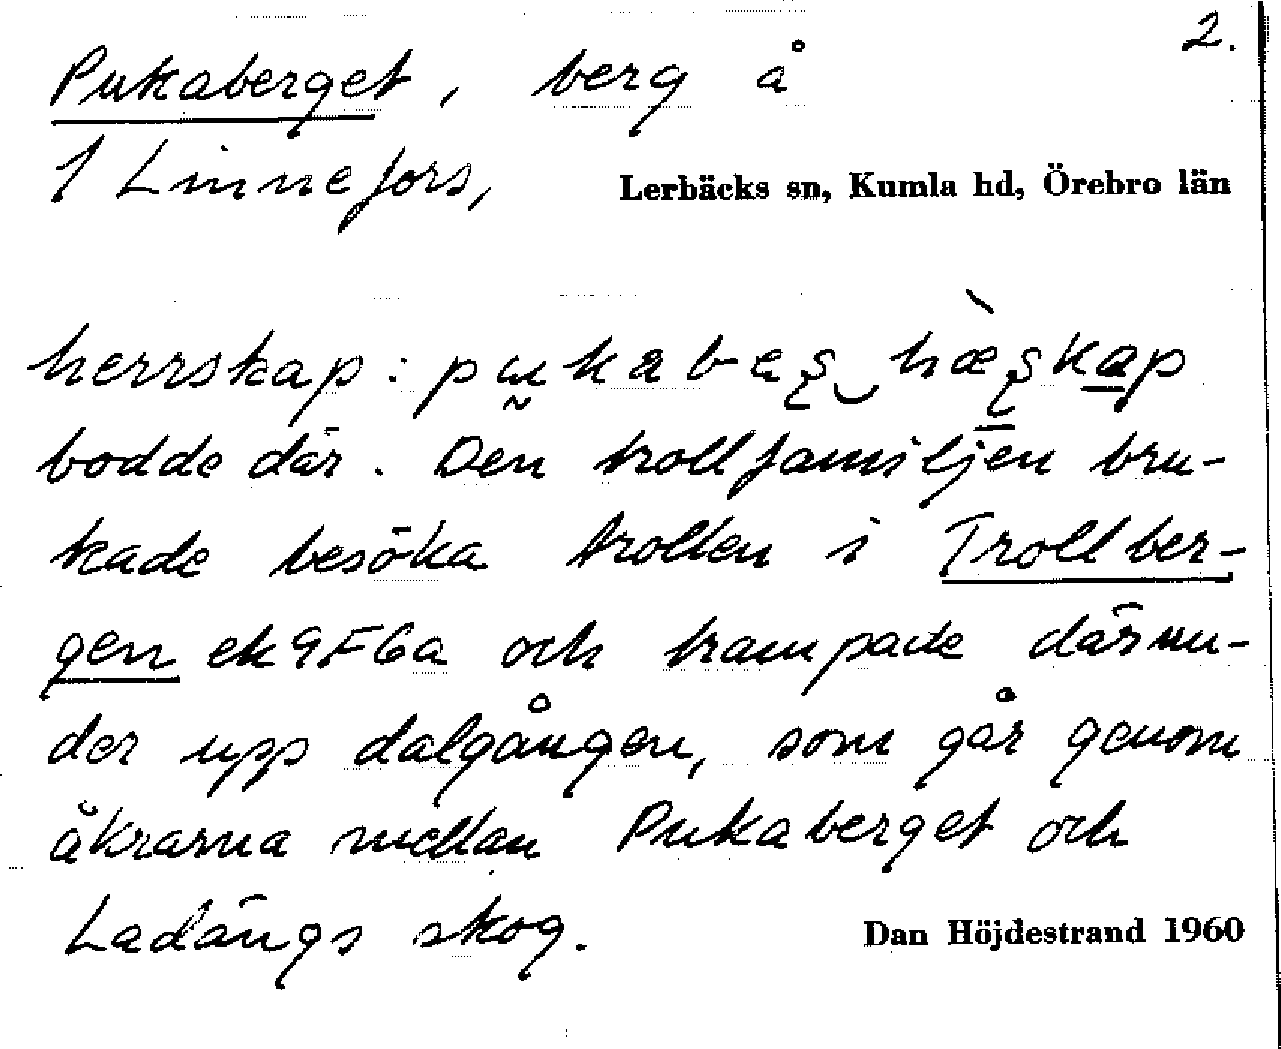 2.
Pukaberget, berg å
1 Linnefors,
Lerbäcks sn, Kumla hd, Örebro län
herrskap:
bodde där. Den trollfamiljen bru-
kade besöka trollen i Trollber-
gen ek 9F6a och trampade därun-
der upp dalgången, som går genom
åkrarna mellan Pukaberget och
Ladängs skog.
Dan Höjdestrand 1960